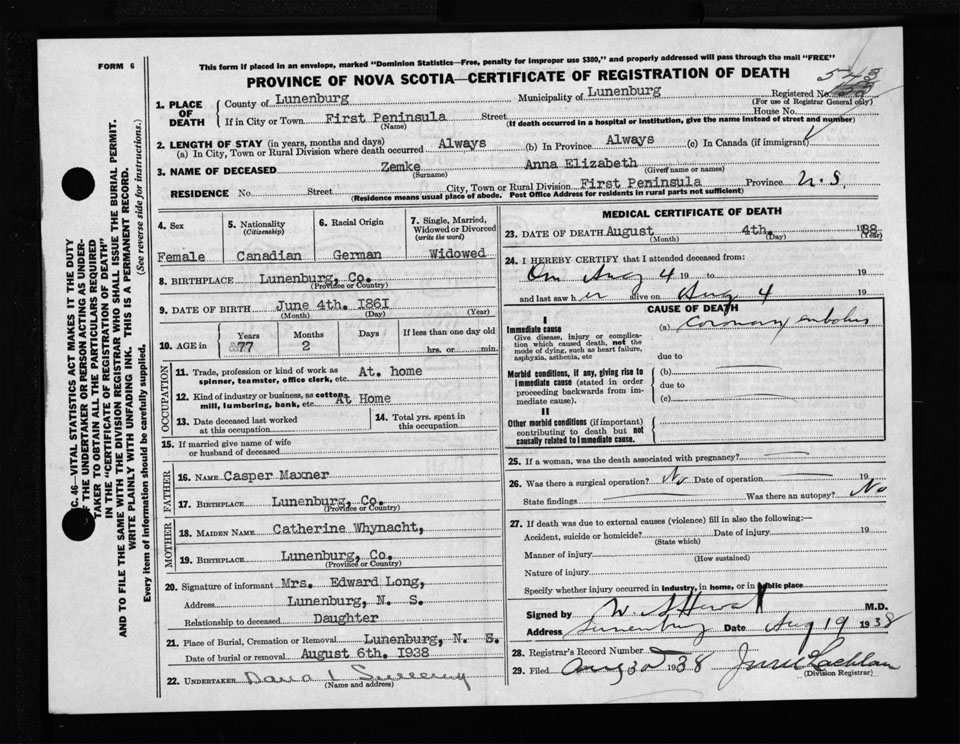 FORM 6
This form if placed in an envelope, marked "Dominion Statistics—Free, penalty for improper use $300," and properly addressed will pass through the mail "FREE"
PROVINCE OF NOVA SCOTIA—CERTIFICATE OF REGISTRATION OF DEATH
Registered No.
(For use of Registrar General only)
1. PLACE OF DEATH
County of Lunenburg Municipality of Lunenburg
If in City or Town First Peninsula Street House No.
(Name) (If death occurred in a hospital or institution, give the name instead of street and number)
2. LENGTH OF STAY (in years, months and days)
(a) In City, Town or Rural Division where death occurred Always (b) In Province Always (c) In Canada (if immigrant)
3. NAME OF DECEASED Zemke Anna Elizabeth
(Surname) (Given name or names)
RESIDENCE No. Street City, Town or Rural Division First Peninsula Province N.S.
(Residence means usual place of abode. Post Office Address for residents in rural parts not sufficient)
4. Sex 5. Nationality (Citizenship) 6. Racial Origin 7. Single, Married, Widowed or Divorced (write the word)
Female Canadian German Widowed
8. BIRTHPLACE Lunenburg, Co.
(Province or Country)
9. DATE OF BIRTH June 4th. 1861
(Month) (Day) (Year)
10. AGE in Years Months Days If less than one day old
77 2 hrs. or min.
OCCUPATION
11. Trade, profession or kind of work as spinner, teamster, office clerk, etc. At. home
12. Kind of industry or business, as cotton mill, lumbering, bank, etc. At Home
13. Date deceased last worked at this occupation
14. Total yrs. spent in this occupation
15. If married give name of wife or husband of deceased
FATHER
16. NAME Casper Maxner
17. BIRTHPLACE Lunenburg, Co.
(Province or Country)
MOTHER
18. MAIDEN NAME Catherine Whynacht,
19. BIRTHPLACE Lunenburg, Co.
(Province or Country)
20. Signature of informant Mrs. Edward Long,
Address Lunenburg, N. S.
Relationship to deceased Daughter
21. Place of Burial, Cremation or Removal Lunenburg, N. S.
Date of burial or removal August 6th. 1938
22. UNDERTAKER
(Name and address)
MEDICAL CERTIFICATE OF DEATH
23. DATE OF DEATH August 4th. 1938
(Month) (Day) (Year)
24. I HEREBY CERTIFY that I attended deceased from:
On Aug 4 19 to 19
and last saw her alive on Aug 4 19
CAUSE OF DEATH
I
Immediate cause
Give disease, injury or complication which caused death, not the mode of dying, such as heart failure, asphyxia, asthenia, etc
(a) Coronary embolus
due to
Morbid conditions, if any, giving rise to immediate cause (stated in order proceeding backwards from immediate cause).
(b)
due to
(c)
II
Other morbid conditions (if important) contributing to death but not causally related to immediate cause.
25. If a woman, was the death associated with pregnancy?
26. Was there a surgical operation? No Date of operation 19
State findings Was there an autopsy? No
27. If death was due to external causes (violence) fill in also the following:—
Accident, suicide or homicide? Date of injury 19
(State which)
Manner of injury
(How sustained)
Nature of injury
Specify whether injury occurred in industry, in home, or in public place
Signed by M.D.
Address Lunenburg Date Aug 19 1938
28. Registrar's Record Number
29. Filed 1938
(Division Registrar)
C. 46—VITAL STATISTICS ACT MAKES IT THE DUTY
OF THE UNDERTAKER OR PERSON ACTING AS UNDER-
TAKER TO OBTAIN ALL THE PARTICULARS REQUIRED
IN THE "CERTIFICATE OF REGISTRATION OF DEATH"
AND TO FILE THE SAME WITH THE DIVISION REGISTRAR WHO SHALL ISSUE THE BURIAL PERMIT.
WRITE PLAINLY WITH UNFADING INK. THIS IS A PERMANENT RECORD.
Every item of information should be carefully supplied. (See reverse side for instructions.)